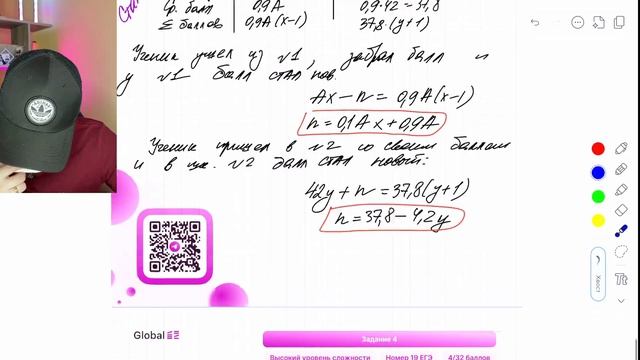 Ср. балл 0,9A 0,9·42=37,8
Σ баллов 0,9A(x-1) 37,8·(y+1)
Ученик ушел из №1, забрал балл и
у №1 балл стал нов.
Ax-n=0,9A(x-1)
n=0,1Ax+0,9A
Ученик пришел в №2 со своим баллом
и в шк. №2 балл стал новой:
42y+n=37,8(y+1)
n=37,8-4,2y
Хвост
Tt
Global EE
Задание 4
Высокий уровень сложности Номер 19 ЕГЭ 4/32 баллов